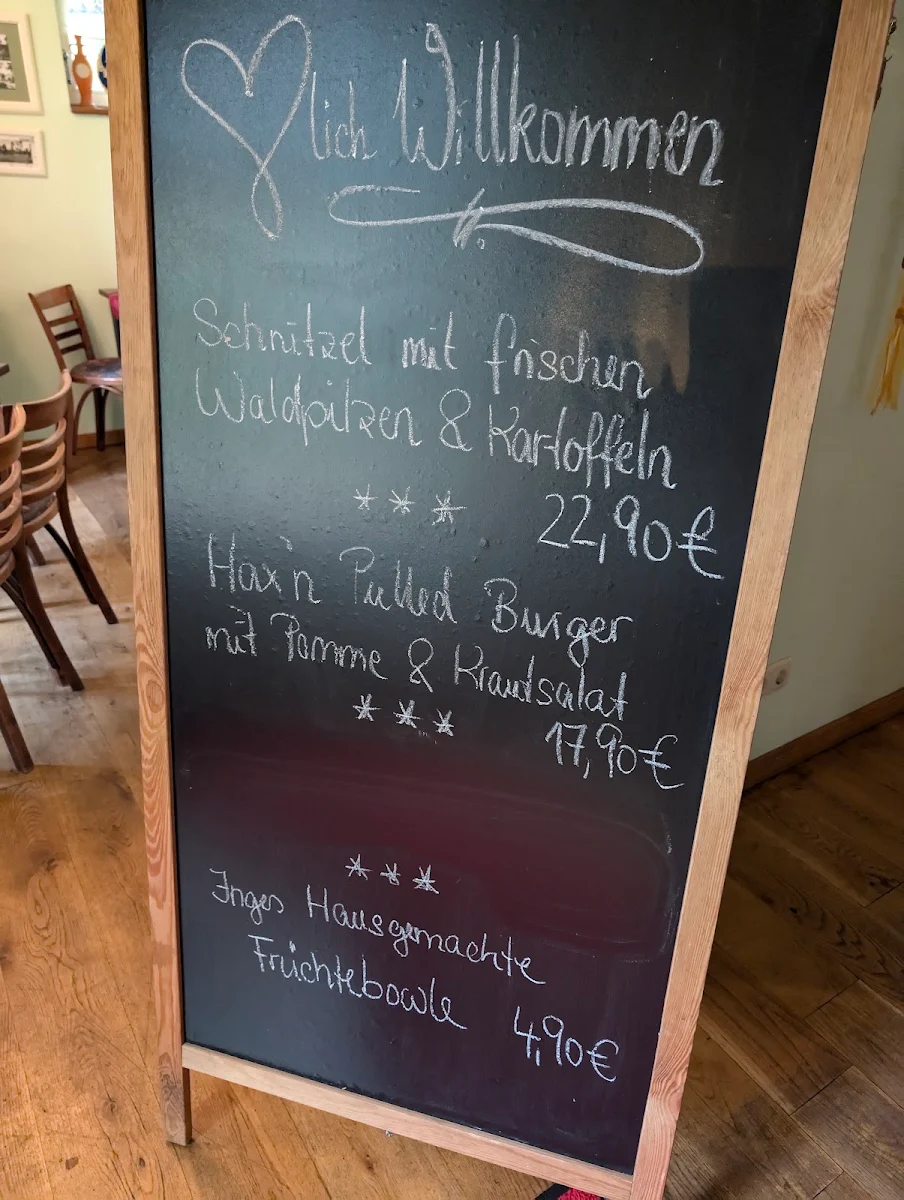 ♡lich Willkommen
Schnitzel mit frischen
Waldpilzen & Kartoffeln
***
22,90€
Hax'n Pulled Burger
mit Pomme & Krautsalat
***
17,90€
***
Inges Hausgemachte
Früchtebowle 4,90€